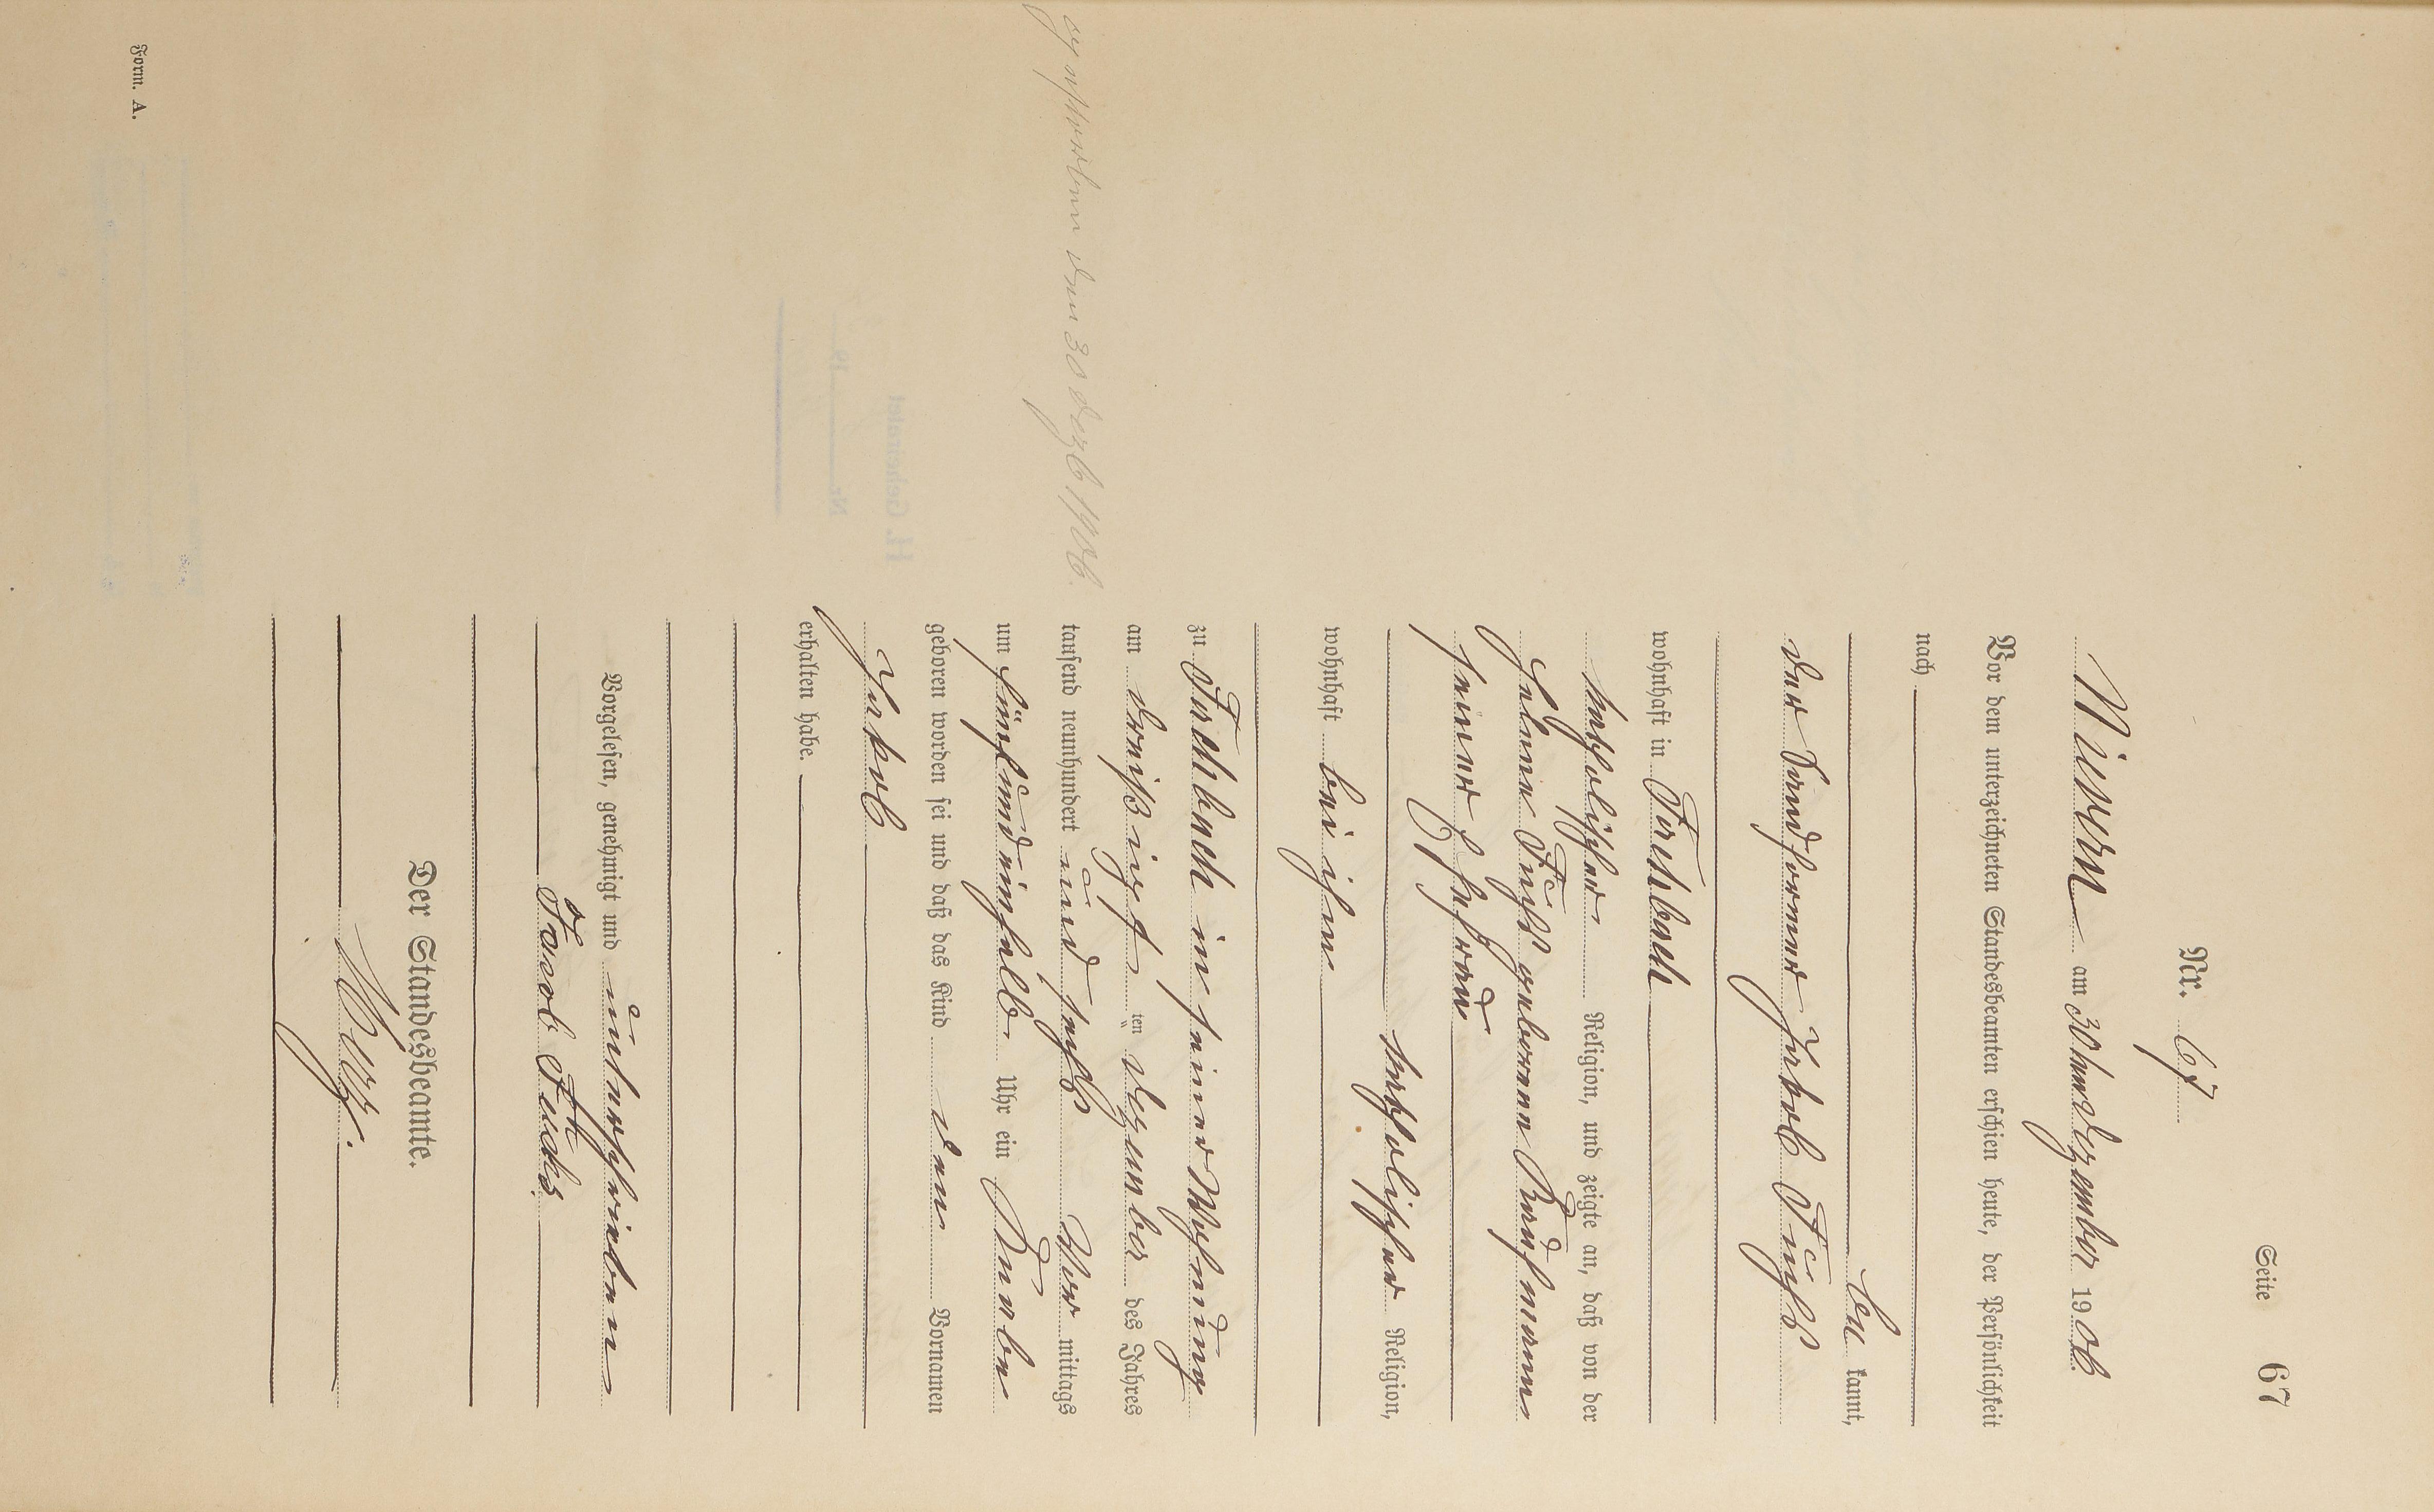 Seite 67
Nr. 67
Nievern am 30ten Dezember 1906
Vor dem unterzeichneten Standesbeamten erschien heute, der Persönlichkeit
nach
be kannt,
der Sandformer Jakob Fuchs
wohnhaft in Fachbach
katholischer Religion, und zeigte an, daß von der
Helene Fuchs geborene Kaufmann
seiner Ehefrau
katholischer Religion,
wohnhaft bei ihm
zu Fachbach in seiner Wohnung
am dreißigsten Dezember des Jahres
tausend neunhundert und sechs Vor mittags
um fünfundeinhalb Uhr ein Knabe
geboren worden sei und daß das Kind den Vornamen
Jakob
erhalten habe.
Vorgelesen, genehmigt und unterschrieben
Jacob Fuchs
Der Standesbeamte.
gestorben den 30 Dezb 1906.
Form. A.